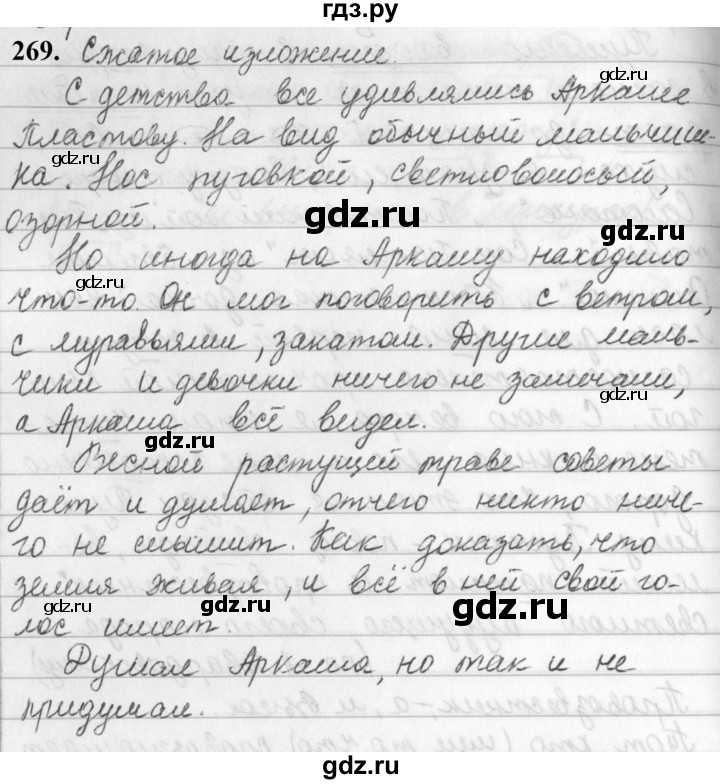 гдз.ру
269. Сжатое изложение.
gdz.ru
С детства все удивлялись Аркаше
Пластову. На вид обычный мальчиш-
gdz.ru
gdz.ru
ка. Нос пуговкой, светловолосый,
gdz.ru
озорной.
Но иногда на Аркашу находило
gdz.ru
что-то. Он мог поговорить с ветром,
с муравьями, закатом. Другие маль-
чики и девочки ничего не замечали,
gdz.ru
а Аркаша всё видел.
gdz.ru
Весной растущей траве советы
даёт и думает, отчего никто ниче-
го не слышит. Как доказать, что
земля живая, и всё в ней свой го-
gdz.ru
gdz.ru
gdz.ru
лос имеет.
Думал Аркаша, но так и не
придумал.
gdz.ru